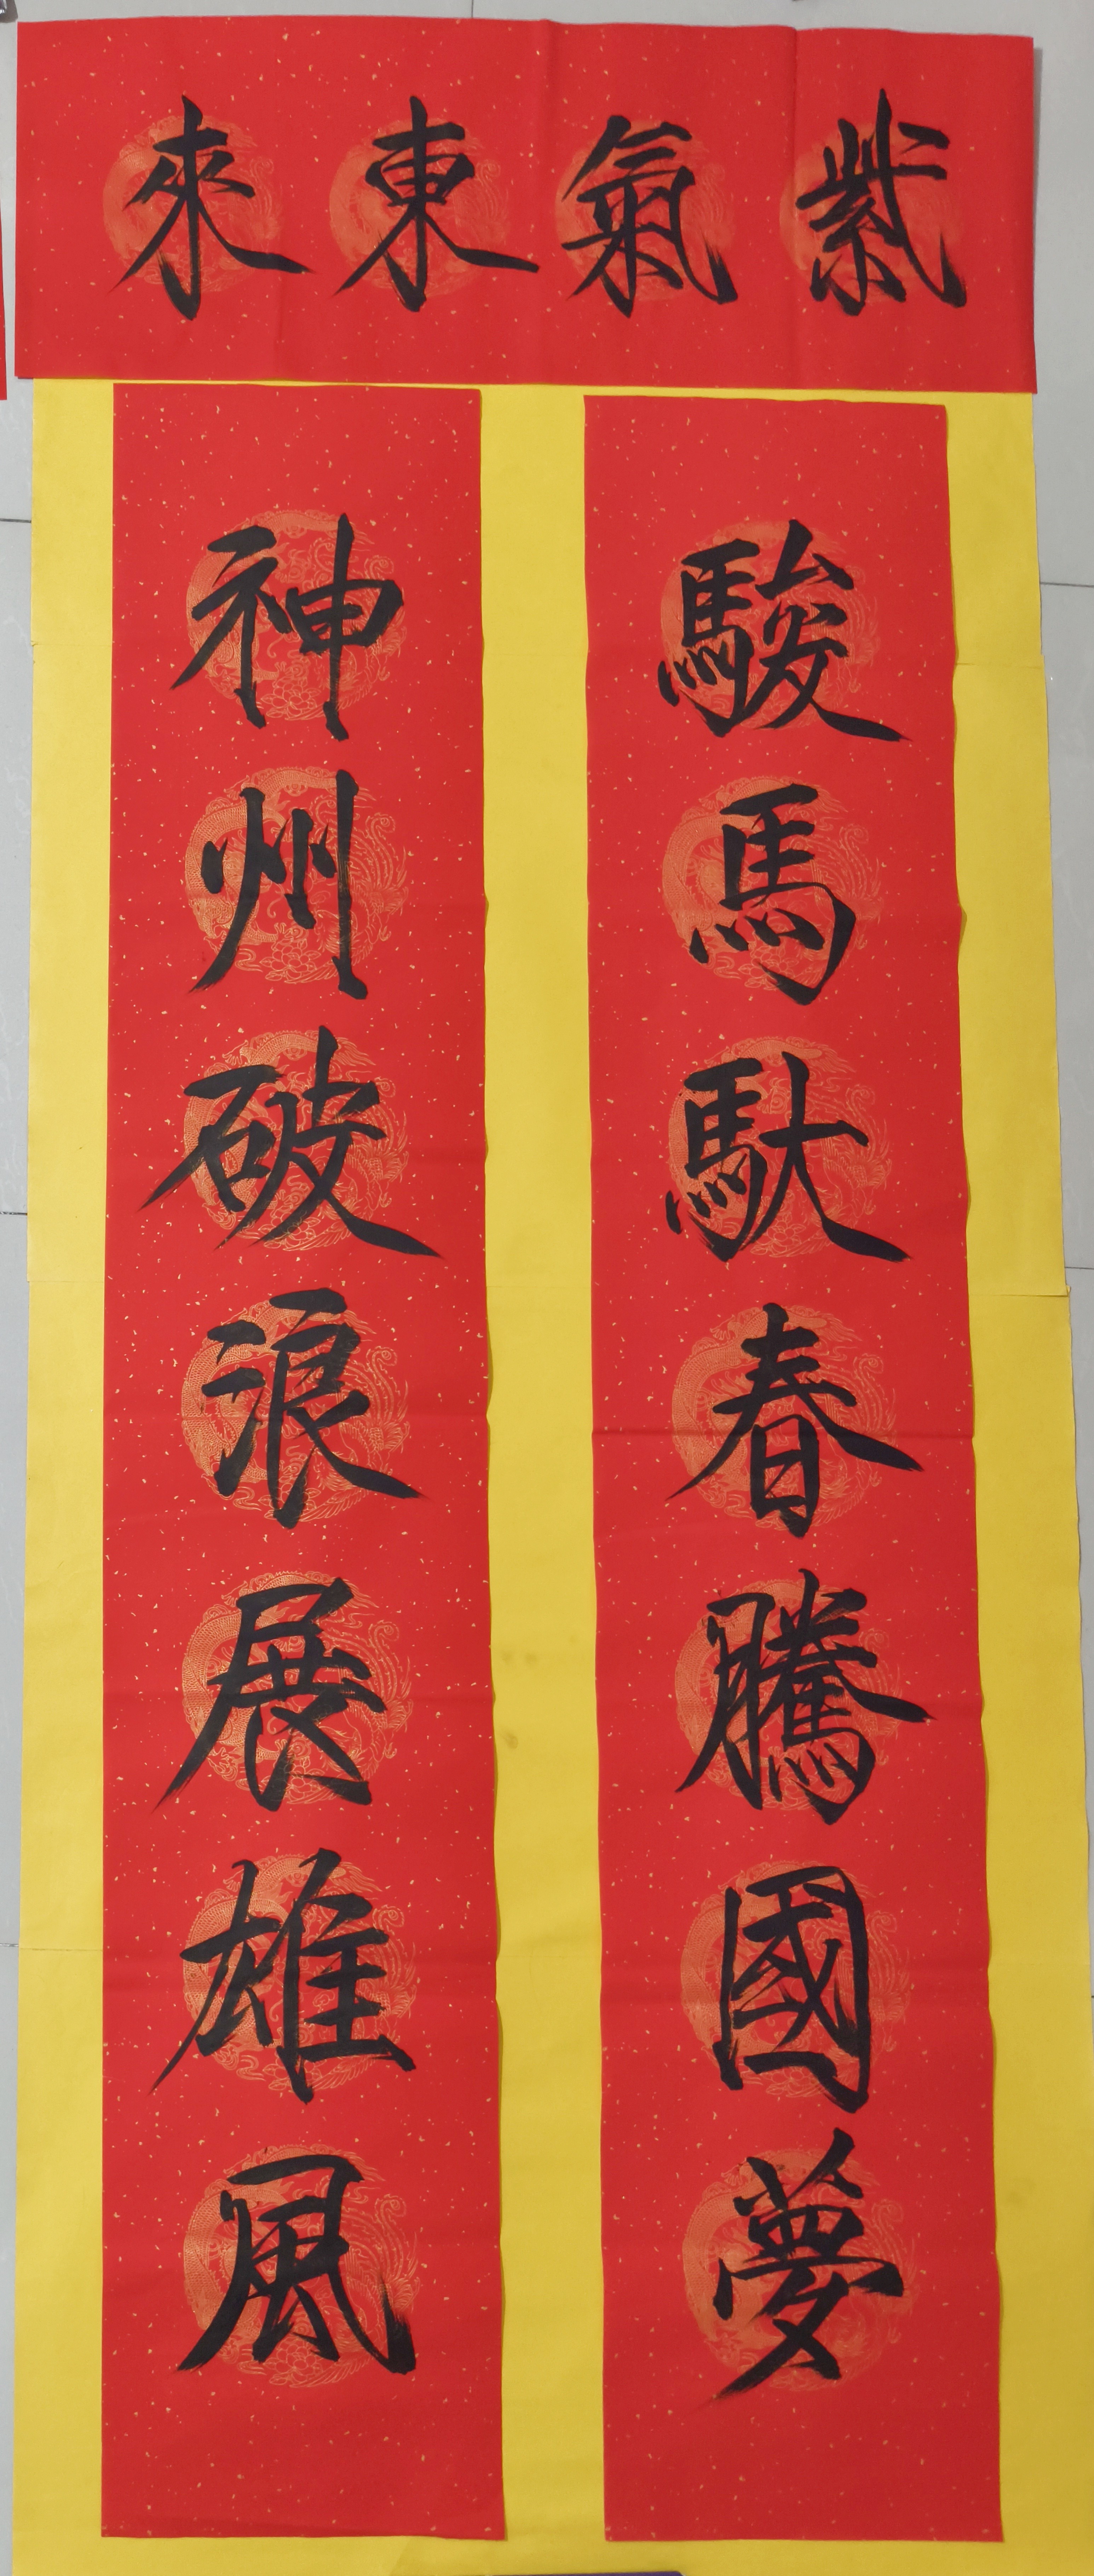 紫氣東來
駿馬馱春騰國夢
神州破浪展雄風